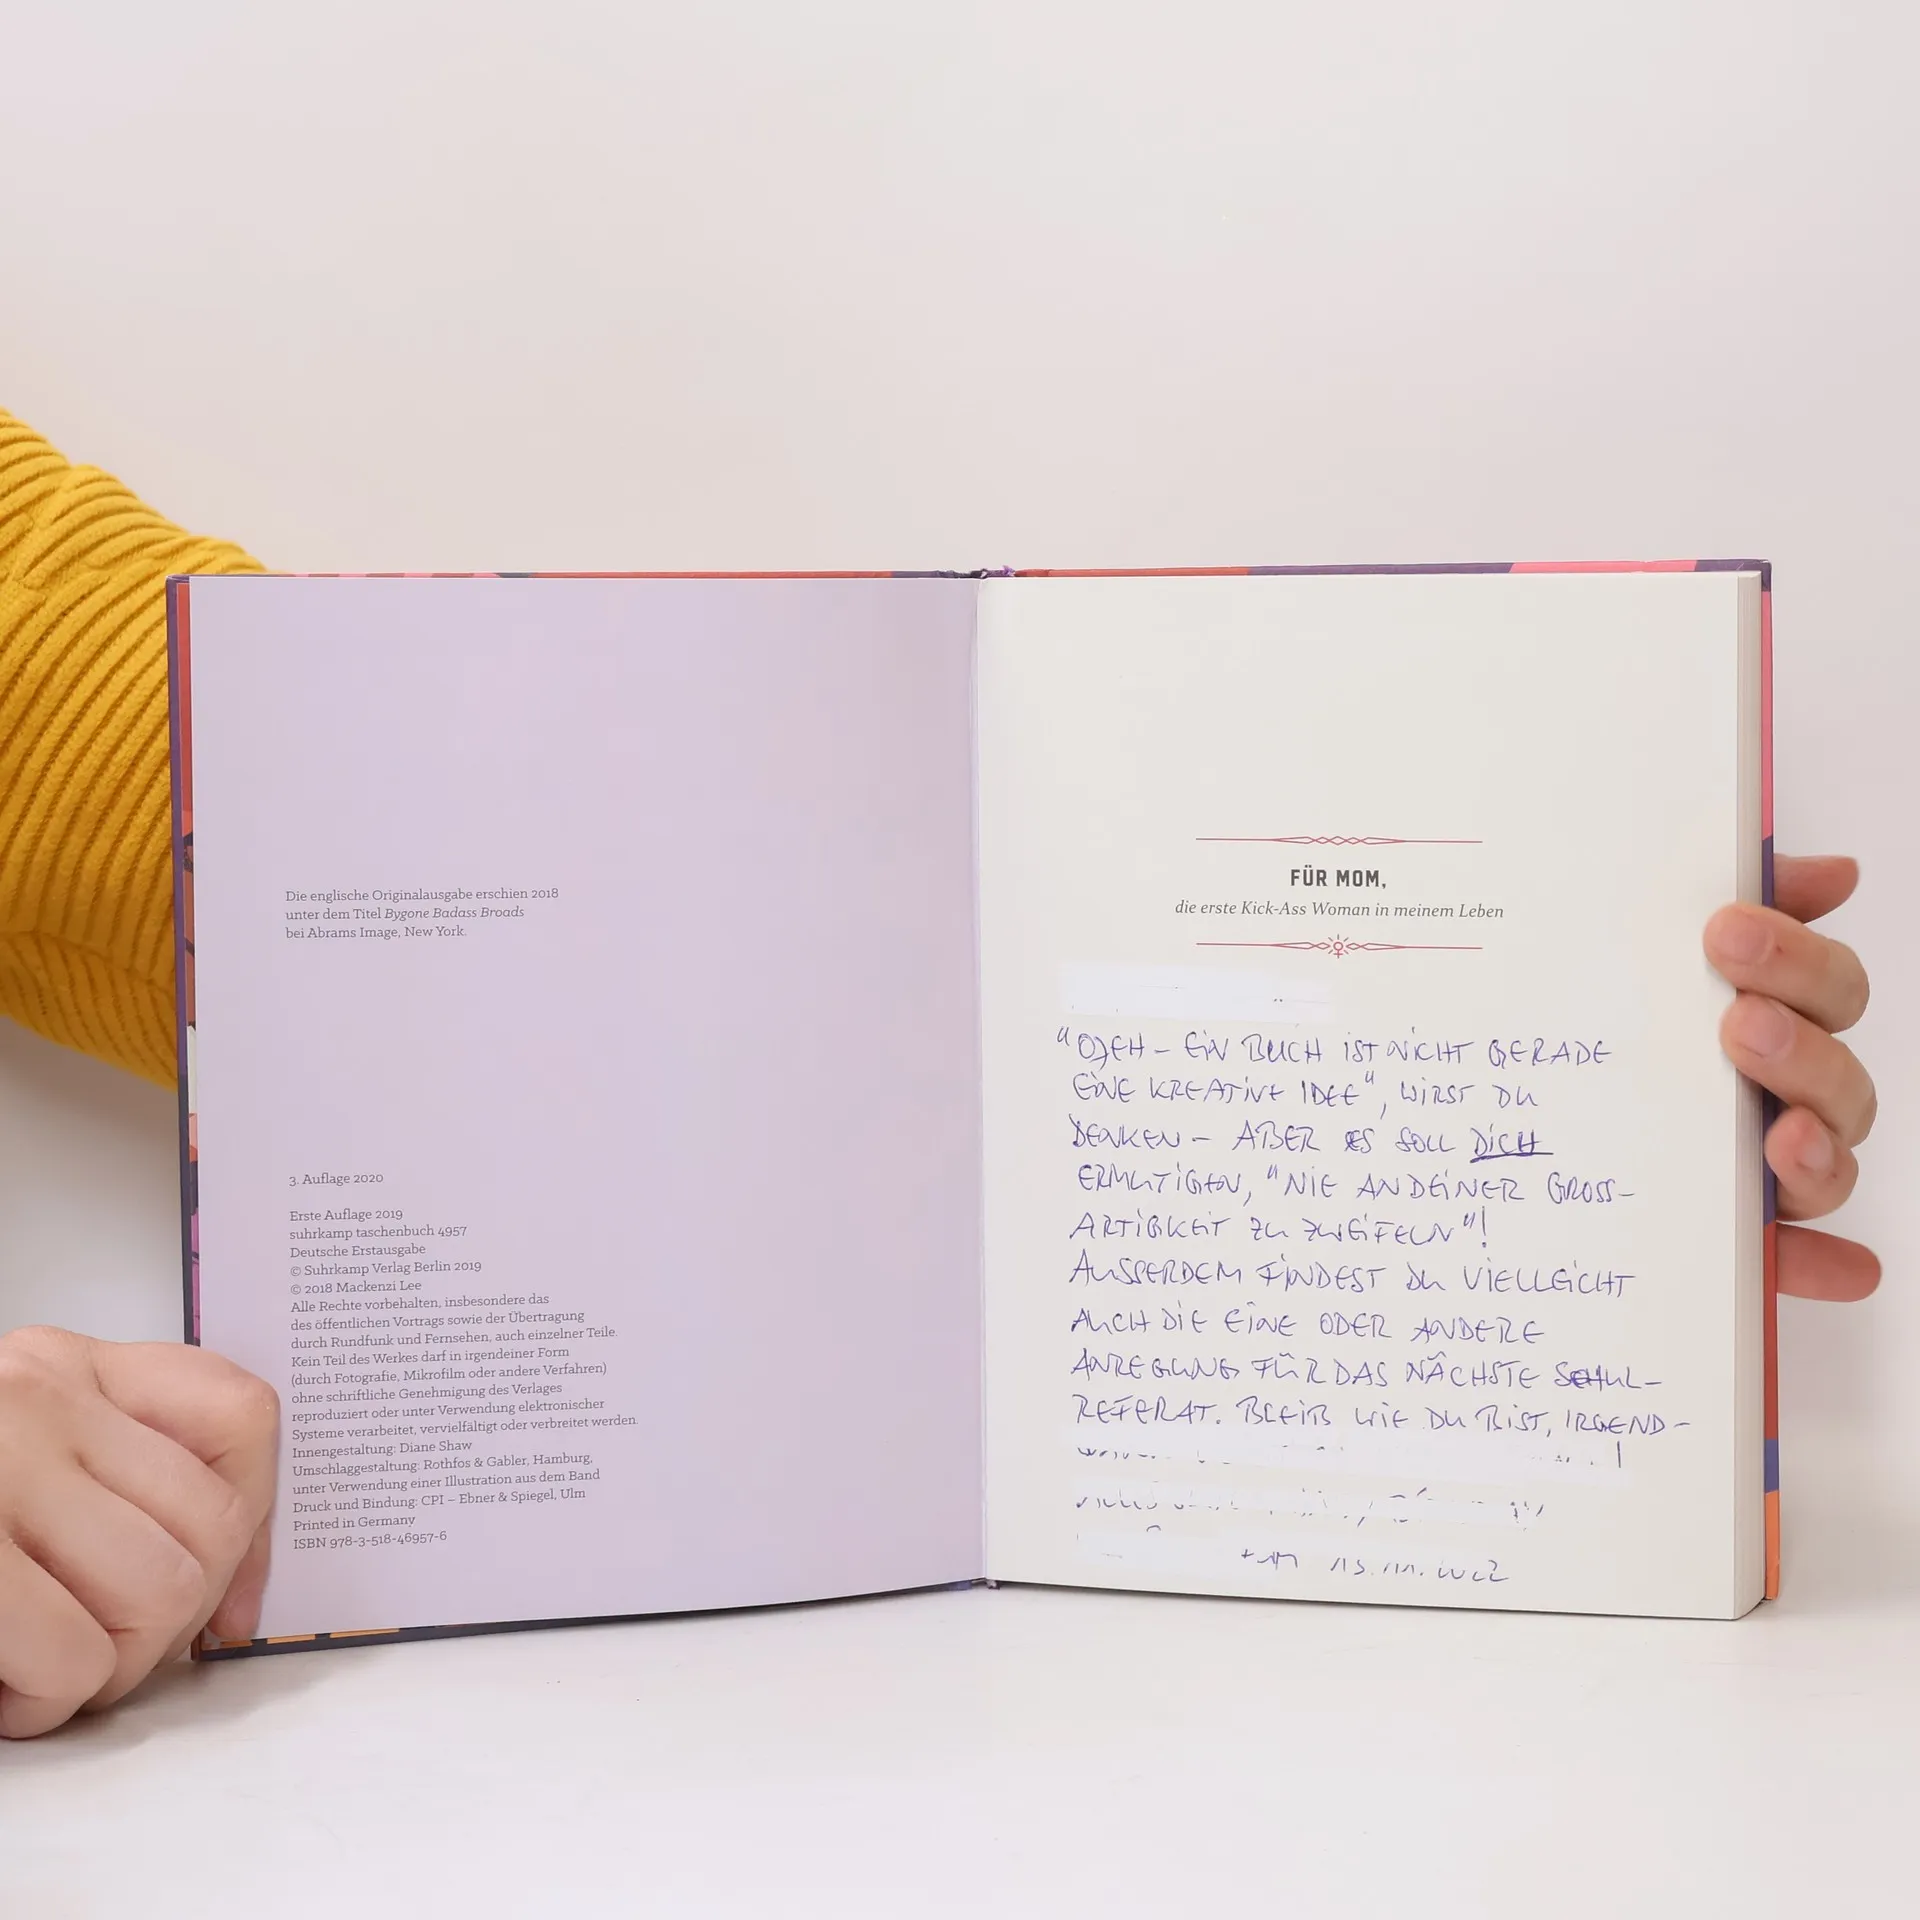 Die englische Originalausgabe erschien 2018
unter dem Titel Bygone Badass Broads
bei Abrams Image, New York.
3. Auflage 2020
Erste Auflage 2019
suhrkamp taschenbuch 4957
Deutsche Erstausgabe
© Suhrkamp Verlag Berlin 2019
© 2018 Mackenzi Lee
Alle Rechte vorbehalten, insbesondere das
des öffentlichen Vortrags sowie der Übertragung
durch Rundfunk und Fernsehen, auch einzelner Teile.
Kein Teil des Werkes darf in irgendeiner Form
(durch Fotografie, Mikrofilm oder andere Verfahren)
ohne schriftliche Genehmigung des Verlages
reproduziert oder unter Verwendung elektronischer
Systeme verarbeitet, vervielfältigt oder verbreitet werden.
Innengestaltung: Diane Shaw
Umschlaggestaltung: Rothfos & Gabler, Hamburg,
unter Verwendung einer Illustration aus dem Band
Druck und Bindung: CPI – Ebner & Spiegel, Ulm
Printed in Germany
ISBN 978-3-518-46957-6
FÜR MOM,
die erste Kick-Ass Woman in meinem Leben
"OJEH – EIN BUCH IST NICHT GERADE
EINE KREATIVE IDEE", WIRST DU
DENKEN – ABER ES SOLL DICH
ERMUTIGEN, "NIE AN DEINER GROSS-
ARTIGKEIT ZU ZWEIFELN"!
AUSSERDEM FINDEST DU VIELLEICHT
AUCH DIE EINE ODER ANDERE
ANREGUNG FÜR DAS NÄCHSTE SCHUL-
REFERAT. BLEIB WIE DU BIST, IRGEND-